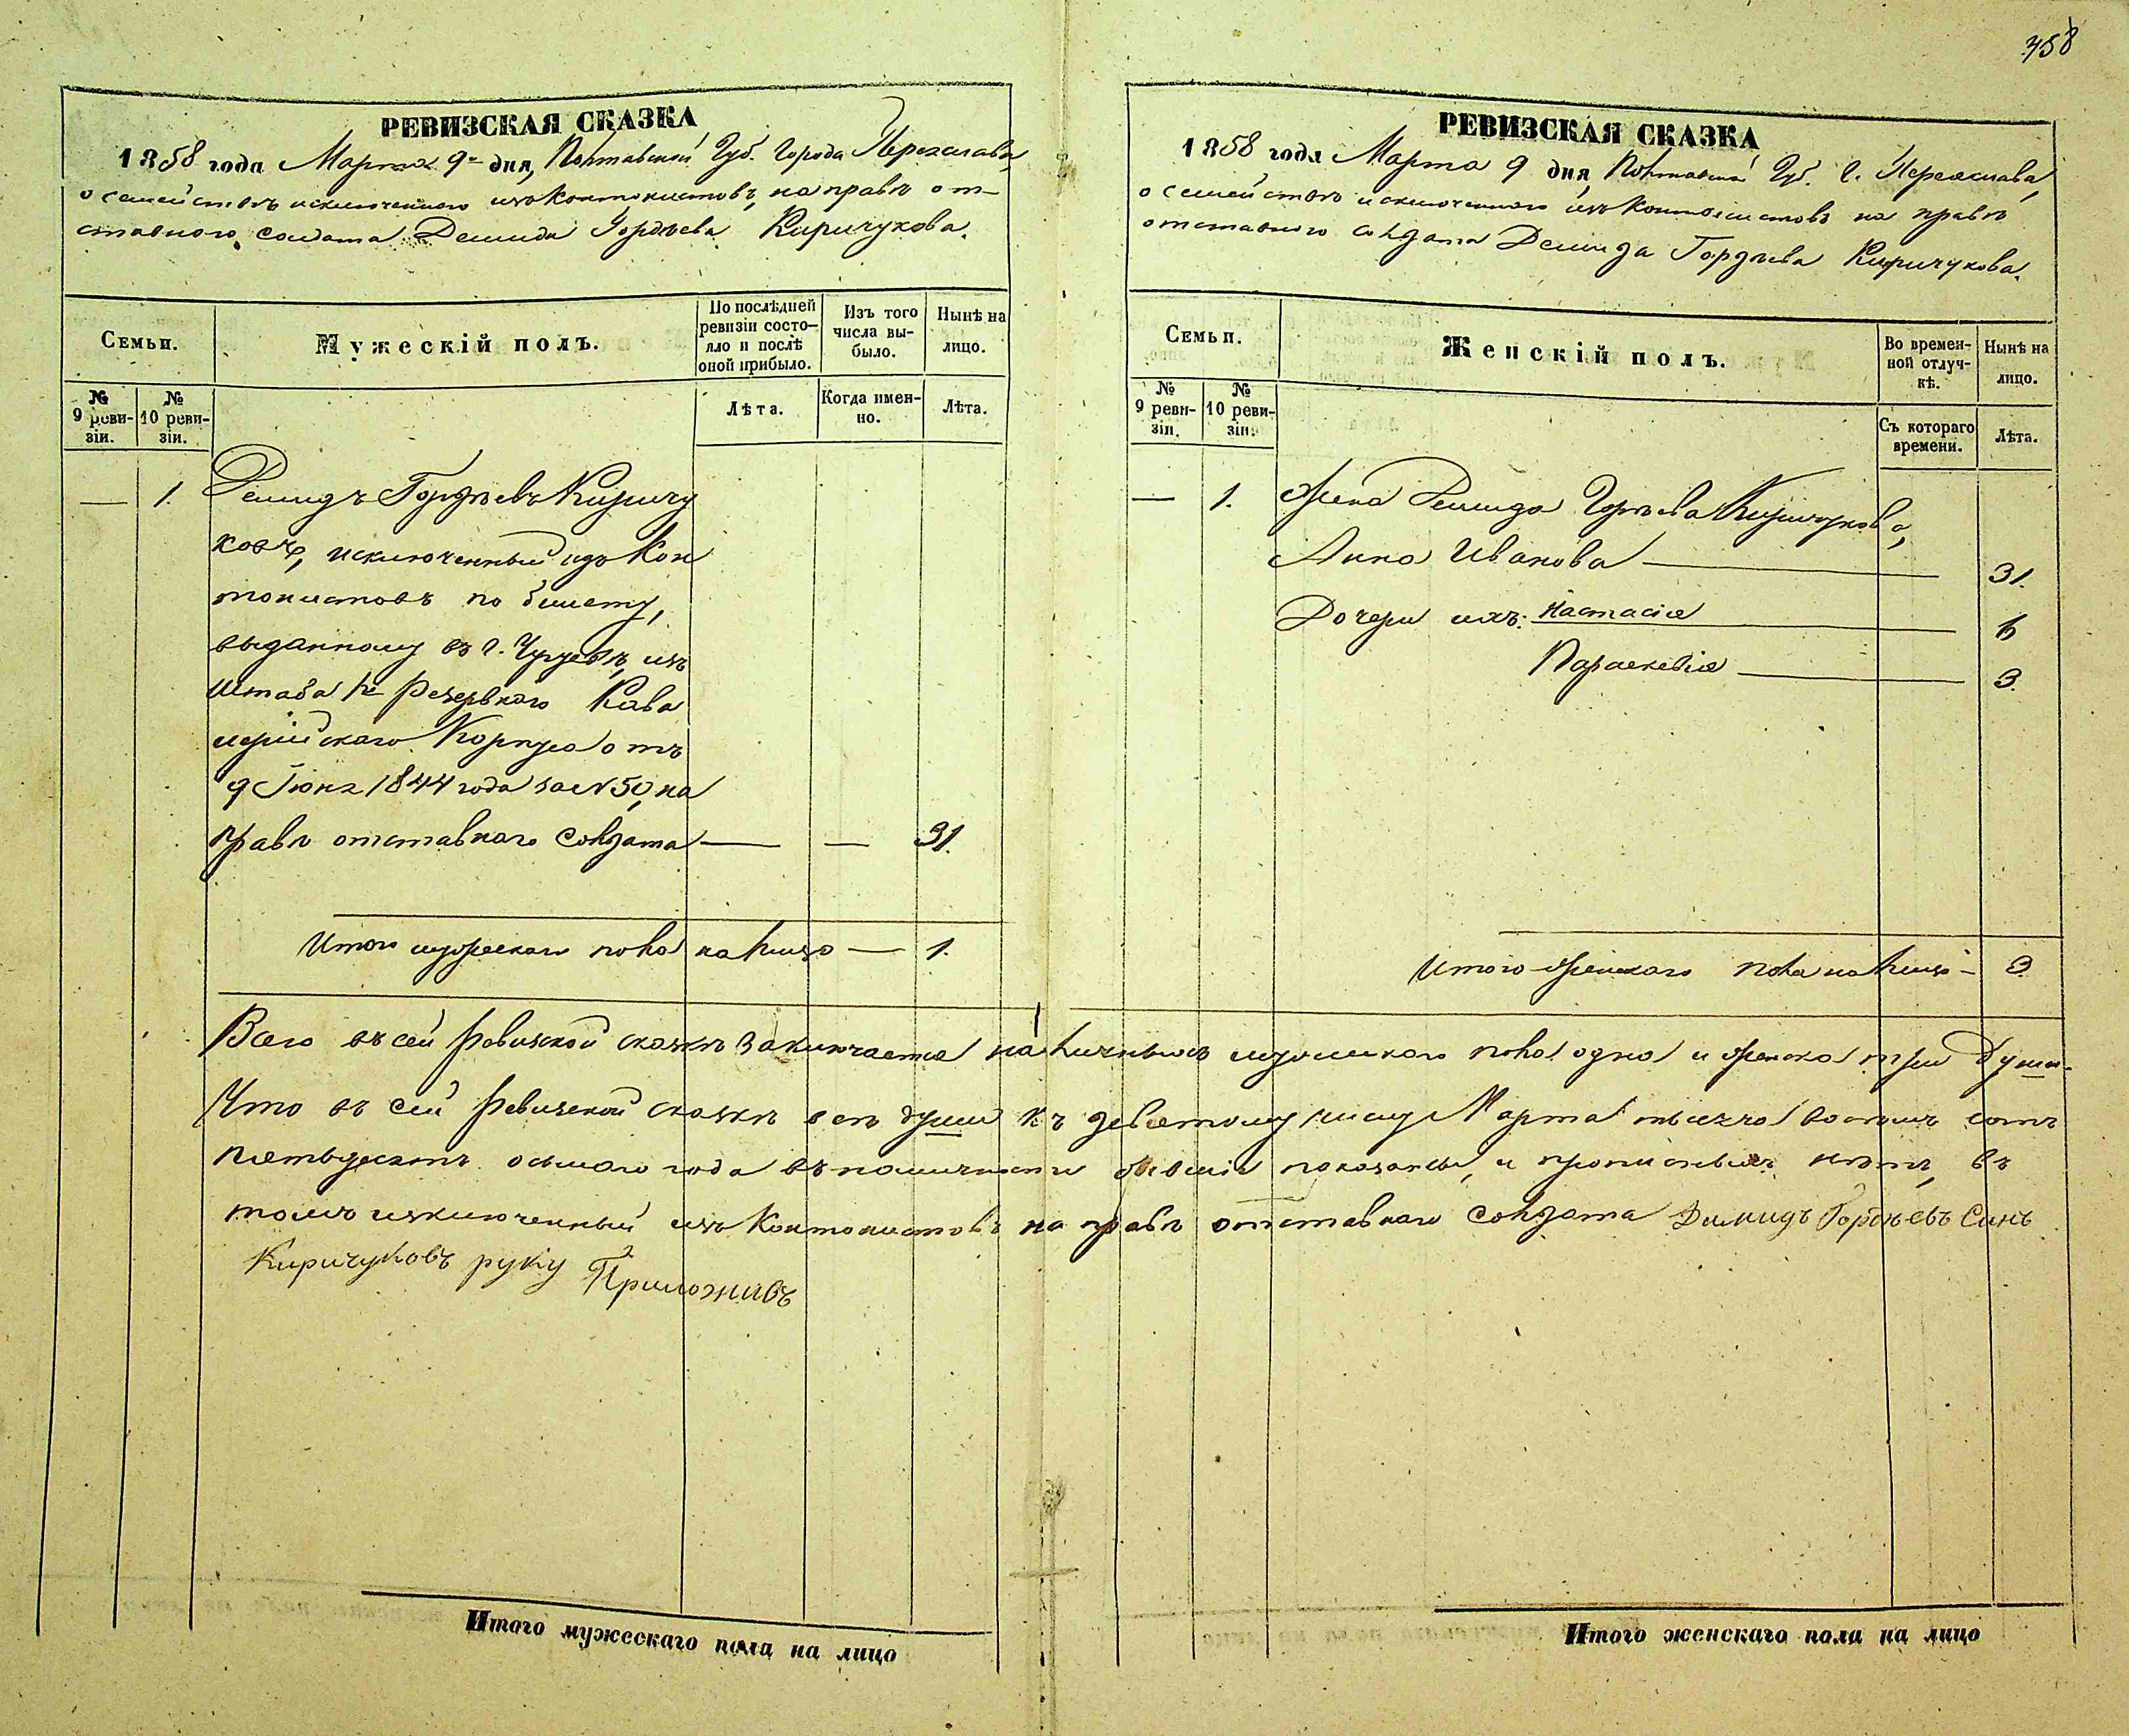 758
РЕВИЗСКАЯ СКАЗКА
1858 года Марта 9го дня, Полтавской Губ. Города Переяслава,
о семействѣ исключеннаго изъ Кантонистовъ, на правѣ от-
ставнаго солдата Демида Гордѣева Киричукова.
Семьи.
Мужескій полъ.
По послѣдней ревизіи состо-
яло и послѣ оной прибыло.
Изъ того числа вы-
было.
Нынѣ на лицо.
№ 9 реви-
зіи.
№ 10 реви-
зіи.
Лѣта.
Когда имен-
но.
Лѣта.
— 1. Демидъ Гордѣевъ Киричу
ковъ, исключенный изъ Кан
тонистовъ по билету,
выданному въ г. Чугуевѣ, изъ
Штаба 1го Резервнаго Кава
лерійскаго Корпуса отъ
9 Іюня 1844 года за № 50, на
правѣ отставнаго Солдата — — 31.
Итого мужескаго пола на лицо — 1.
РЕВИЗСКАЯ СКАЗКА
1858 года Марта 9 дня, Полтавской Губ. г. Переяслава,
о семействѣ исключеннаго изъ Кантонистовъ на правѣ
отставнаго солдата Демида Гордѣева Киричукова.
Семьи.
Женскій полъ.
Во времен-
ной отлуч-
кѣ.
Нынѣ на лицо.
№ 9 реви-
зіи.
№ 10 реви-
зіи.
Съ котораго времени.
Лѣта.
— 1. Жена Демида Гордѣева Киричукова,
Анна Иванова — 31.
Дочери ихъ: Настасія — 6
Параскевія — 3.
Итого женскаго пола на лицо — 3.
Всего въ сей Ревизской сказкѣ заключается наличныхъ мужескаго пола одна и женска три души.
Что въ сей Ревизской сказкѣ всѣ души къ девятому числу Марта тысяча восемь сотъ
пятьдесятъ осьмаго года въ наличности бывшія показаны, и прописныхъ нѣтъ, въ
томъ изключенный изъ Кантонистовъ на правѣ отставнаго Солдата Димидъ Гордѣевъ Синъ
Киричуковъ руку Приложивъ
Итого мужескаго пола на лицо
Итого женскаго пола на лицо